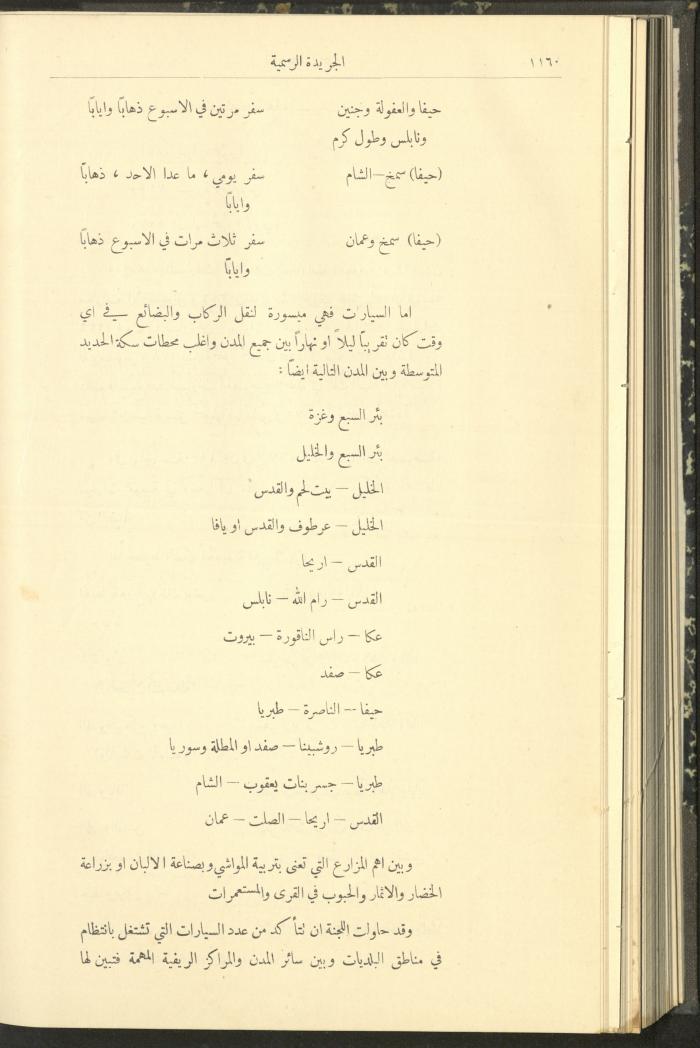 ١١٦٠ الجريدة الرسمية
حيفا والعفولة وجنين سفر مرتين في الاسبوع ذهابًا وايابًا
ونابلس وطول كرم
(حيفا) سمخ—الشام سفر يومي، ما عدا الاحد، ذهابًا
وايابًا
(حيفا) سمخ وعمان سفر ثلاث مرات في الاسبوع ذهابًا
وايابًا
اما السيارات فهي ميسورة لنقل الركاب والبضائع في اي
وقت كان تقريبًا ليلاً او نهاراً بين جميع المدن واغلب محطات سكة الحديد
المتوسطة وبين المدن التالية ايضًا :
بئر السبع وغزة
بئر السبع والخليل
الخليل — بيت لحم والقدس
الخليل — عرطوف والقدس او يافا
القدس — اريحا
القدس — رام الله — نابلس
عكا — راس الناقورة — بيروت
عكا — صفد
حيفا — الناصرة — طبريا
طبريا — روشبينا — صفد او المطلة وسوريا
طبريا — جسر بنات يعقوب — الشام
القدس — اريحا — الصلت — عمان
وبين اهم المزارع التي تعنى بتربية المواشي وبصناعة الالبان او بزراعة
الخضار والاثمار والحبوب في القرى والمستعمرات
وقد حاولت اللجنة ان تتأكد من عدد السيارات التي تشتغل بانتظام
في مناطق البلديات وبين سائر المدن والمراكز الريفية المهمة فتبين لها